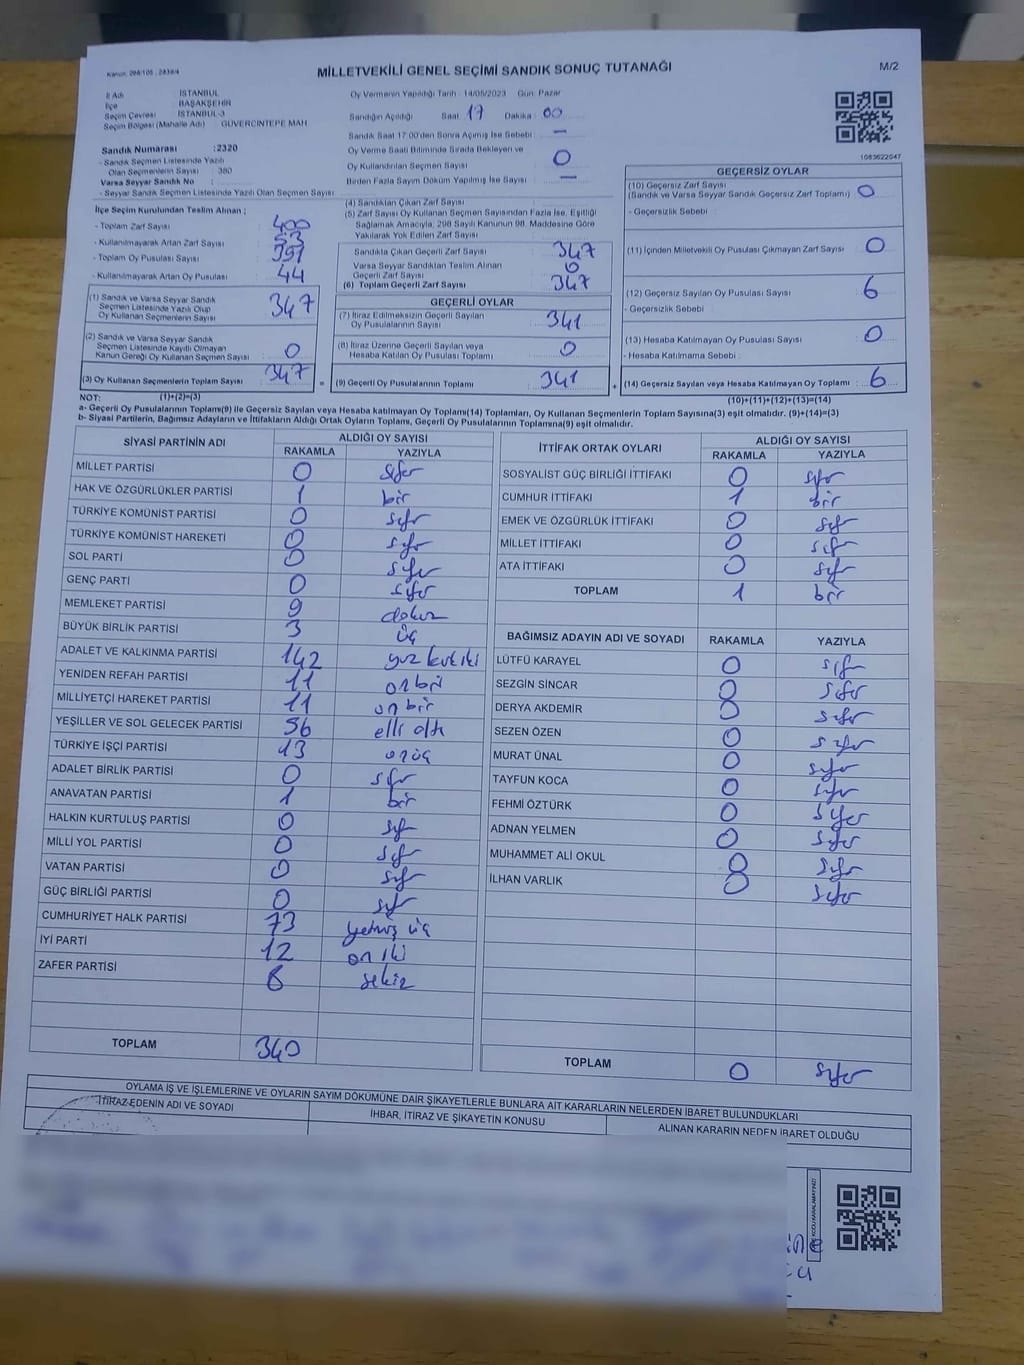 Kanun: 298/105 ; 2839/4
MİLLETVEKİLİ GENEL SEÇİMİ SANDIK SONUÇ TUTANAĞI
M/2
İl Adı : İSTANBUL
İlçe : BAŞAKŞEHİR
Seçim Çevresi : İSTANBUL-3
Seçim Bölgesi (Mahalle Adı) : GÜVERCİNTEPE MAH
Sandık Numarası :2320
- Sandık Seçmen Listesinde Yazılı
Olan Seçmenlerin Sayısı : 380
Varsa Seyyar Sandık No :
- Seyyar Sandık Seçmen Listesinde Yazılı Olan Seçmen Sayısı :
Oy Vermenin Yapıldığı Tarih : 14/05/2023 Gün: Pazar
Sandığın Açıldığı Saat : 17 Dakika : 00
Sandık Saat 17:00'den Sonra Açımış İse Sebebi : —
Oy Verme Saati Bitiminde Sırada Bekleyen ve
Oy Kullandırılan Seçmen Sayısı : 0
Birden Fazla Sayım Döküm Yapılmış İse Sayısı : —
1083622047
İlçe Seçim Kurulundan Teslim Alınan ;
- Toplam Zarf Sayısı : 400
- Kullanılmayarak Artan Zarf Sayısı : 53
- Toplam Oy Pusulası Sayısı : 391
- Kullanılmayarak Artan Oy Pusulası : 44
(1) Sandık ve Varsa Seyyar Sandık
Seçmen Listesinde Yazılı Olup
Oy Kullanan Seçmenlerin Sayısı : 347
(2) Sandık ve Varsa Seyyar Sandık
Seçmen Listesinde Kayıtlı Olmayan
Kanun Gereği Oy Kullanan Seçmen Sayısı : 0
(3) Oy Kullanan Seçmenlerin Toplam Sayısı : 347
(1)+(2)=(3)
(4) Sandıktan Çıkan Zarf Sayısı :
(5) Zarf Sayısı Oy Kullanan Seçmen Sayısından Fazla İse, Eşitliği
Sağlamak Amacıyla; 298 Sayılı Kanunun 98. Maddesine Göre
Yakılarak Yok Edilen Zarf Sayısı :
Sandıkta Çıkan Geçerli Zarf Sayısı : 347
Varsa Seyyar Sandıktan Teslim Alınan
Geçerli Zarf Sayısı : 0
(6) Toplam Geçerli Zarf Sayısı : 347
GEÇERLİ OYLAR
(7) İtiraz Edilmeksizin Geçerli Sayılan
Oy Pusulalarının Sayısı : 341
(8) İtiraz Üzerine Geçerli Sayılan veya
Hesaba Katılan Oy Pusulası Toplamı : 0
= (9) Geçerli Oy Pusulalarının Toplamı : 341 +
GEÇERSİZ OYLAR
(10) Geçersiz Zarf Sayısı
(Sandık ve Varsa Seyyar Sandık Geçersiz Zarf Toplamı) : 0
- Geçersizlik Sebebi :
(11) İçinden Milletvekili Oy Pusulası Çıkmayan Zarf Sayısı : 0
(12) Geçersiz Sayılan Oy Pusulası Sayısı : 6
- Geçersizlik Sebebi :
(13) Hesaba Katılmayan Oy Pusulası Sayısı : 0
- Hesaba Katılmama Sebebi :
(14) Geçersiz Sayılan veya Hesaba Katılmayan Oy Toplamı : 6
(10)+(11)+(12)+(13)=(14)
NOT:
a- Geçerli Oy Pusulalarının Toplamı(9) ile Geçersiz Sayılan veya Hesaba katılmayan Oy Toplamı(14) Toplamları, Oy Kullanan Seçmenlerin Toplam Sayısına(3) eşit olmalıdır. (9)+(14)=(3)
b- Siyasi Partilerin, Bağımsız Adayların ve İttifakların Aldığı Ortak Oyların Toplamı, Geçerli Oy Pusulalarının Toplamına(9) eşit olmalıdır.
SİYASİ PARTİNİN ADI ALDIĞI OY SAYISI
RAKAMLA YAZIYLA
MİLLET PARTİSİ 0 sıfır
HAK VE ÖZGÜRLÜKLER PARTİSİ 1 bir
TÜRKİYE KOMÜNİST PARTİSİ 0 sıfır
TÜRKİYE KOMÜNİST HAREKETİ 0 sıfır
SOL PARTİ 0 sıfır
GENÇ PARTİ 0 sıfır
MEMLEKET PARTİSİ 9 dokuz
BÜYÜK BİRLİK PARTİSİ 3 üç
ADALET VE KALKINMA PARTİSİ 142 yüz kırk iki
YENİDEN REFAH PARTİSİ 11 onbir
MİLLİYETÇİ HAREKET PARTİSİ 11 onbir
YEŞİLLER VE SOL GELECEK PARTİSİ 56 elli altı
TÜRKİYE İŞÇİ PARTİSİ 13 onüç
ADALET BİRLİK PARTİSİ 0 sıfır
ANAVATAN PARTİSİ 1 bir
HALKIN KURTULUŞ PARTİSİ 0 sıfır
MİLLİ YOL PARTİSİ 0 sıfır
VATAN PARTİSİ 0 sıfır
GÜÇ BİRLİĞİ PARTİSİ 0 sıfır
CUMHURİYET HALK PARTİSİ 73 yetmiş üç
İYİ PARTİ 12 on iki
ZAFER PARTİSİ 8 sekiz
TOPLAM 340
İTTİFAK ORTAK OYLARI ALDIĞI OY SAYISI
RAKAMLA YAZIYLA
SOSYALİST GÜÇ BİRLİĞİ İTTİFAKI 0 sıfır
CUMHUR İTTİFAKI 1 bir
EMEK VE ÖZGÜRLÜK İTTİFAKI 0 sıfır
MİLLET İTTİFAKI 0 sıfır
ATA İTTİFAKI 0 sıfır
TOPLAM 1 bir
BAĞIMSIZ ADAYIN ADI VE SOYADI RAKAMLA YAZIYLA
LÜTFÜ KARAYEL 0 sıfır
SEZGİN SİNCAR 0 sıfır
DERYA AKDEMİR 0 sıfır
SEZEN ÖZEN 0 sıfır
MURAT ÜNAL 0 sıfır
TAYFUN KOCA 0 sıfır
FEHMİ ÖZTÜRK 0 sıfır
ADNAN YELMEN 0 sıfır
MUHAMMET ALİ OKUL 0 sıfır
İLHAN VARLIK 0 sıfır
TOPLAM 0 sıfır
OYLAMA İŞ VE İŞLEMLERİNE VE OYLARIN SAYIM DÖKÜMÜNE DAİR ŞİKAYETLERLE BUNLARA AİT KARARLARIN NELERDEN İBARET BULUNDUKLARI
İTİRAZ EDENİN ADI VE SOYADI
İHBAR, İTİRAZ VE ŞİKAYETİN KONUSU
ALINAN KARARIN NEDEN İBARET OLDUĞU